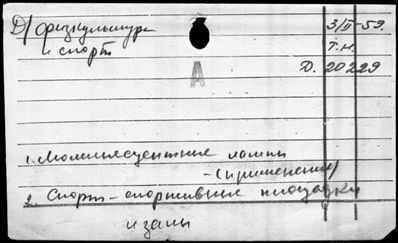 Д) физкультура
и спорт
3/II-59.
т.н.
Д. 20229
А
1. Люминесцентные лампы
- (применение)
2. Спорт - спортивные площадки
и залы